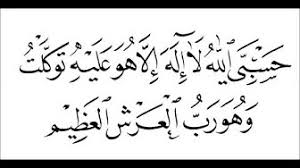 حَسْبِيَ ٱللَّهُ لَآ إِلَٰهَ إِلَّا هُوَ عَلَيْهِ تَوَكَّلْتُ
وَهُوَ رَبُّ ٱلْعَرْشِ ٱلْعَظِيمِ